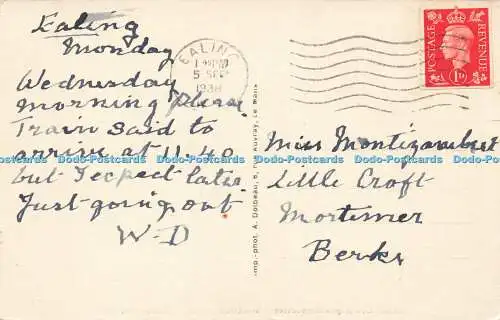 Ealing
Monday
Wednesday
morning please
Train said to
arrive at 11.40
but I expect later
Just going out
W-D
EALING
5 SEP
1938
POSTAGE
REVENUE
1D
Imp.-phot. A. Dolbeau, Auvray, Le Mans
Miss Montizambert
Little Croft
Mortimer
Berks
Dodo-Postcards Dodo-Postcards Dodo-Postcards Dodo-Postcards Dodo-Postcards Dodo-Postcards